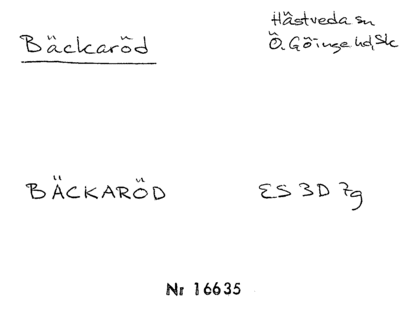 Bäckaröd
Hästveda sn
Ö. Göinge hd, Sk
BÄCKARÖD
ES 3D 7g
Nr 16635